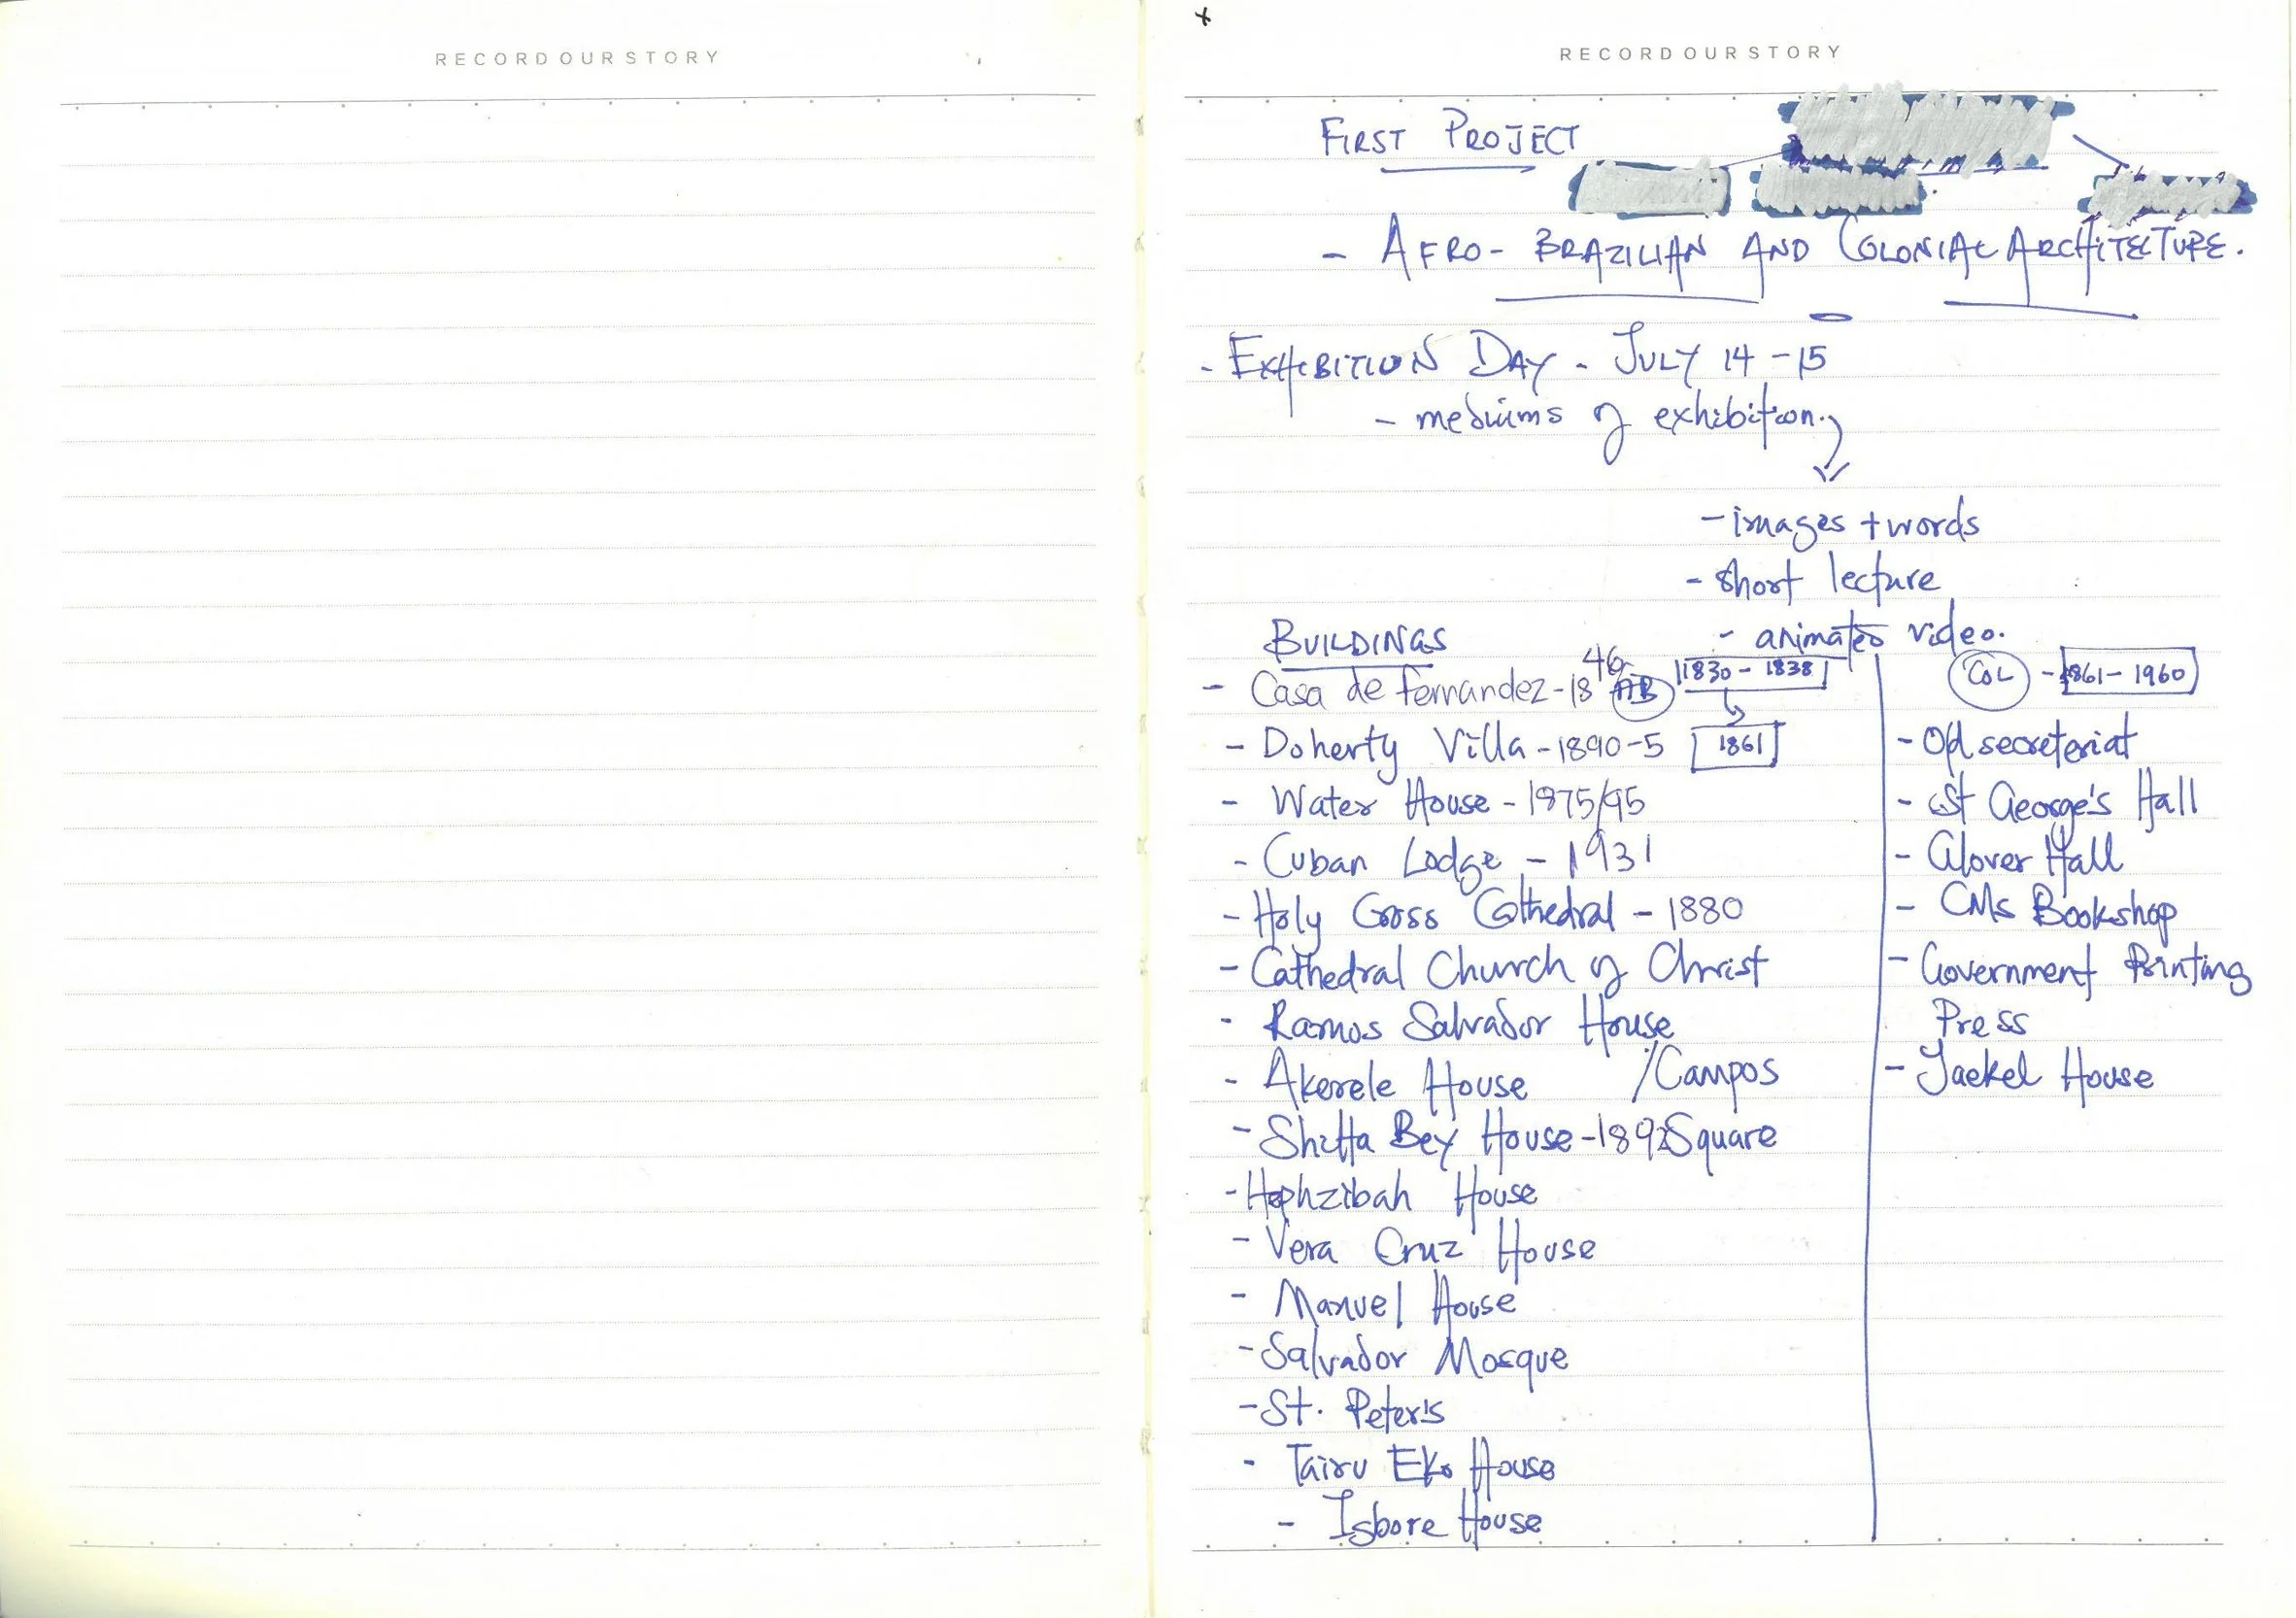 RECORD OUR STORY
RECORD OUR STORY
FIRST PROJECT
- AFRO-BRAZILIAN AND COLONIAL ARCHITECTURE.
- EXHIBITION DAY - JULY 14-15
- mediums of exhibition
- images + words
- short lecture
- animated video.
BUILDINGS
- Casa de Fernandez - 1846
AB
1830 - 1838
1861
- Doherty Villa - 1890-5
- Water House - 1975/95
- Cuban Lodge - 1931
- Holy Cross Cathedral - 1880
- Cathedral Church of Christ
- Ramos Salvador House
- Akerele House /Campos
Square
- Shitta Bey House - 1892
- Hephzibah House
- Vera Cruz House
- Manuel House
- Salvador Mosque
- St. Peter's
- Tairu Eko House
- Igbore House
COL - 1861 - 1960
- Old secreteriat
- St George's Hall
- Glover Hall
- CMS Bookshop
- Government Printing
Press
- Jaekel House